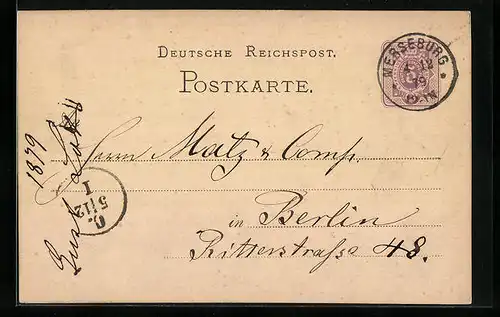 DEUTSCHE REICHSPOST.
POSTKARTE.
MERSEBURG
12
79
Herrn Matz & Comp.
in Berlin
Ritterstraße 48.
1879
5/12
I